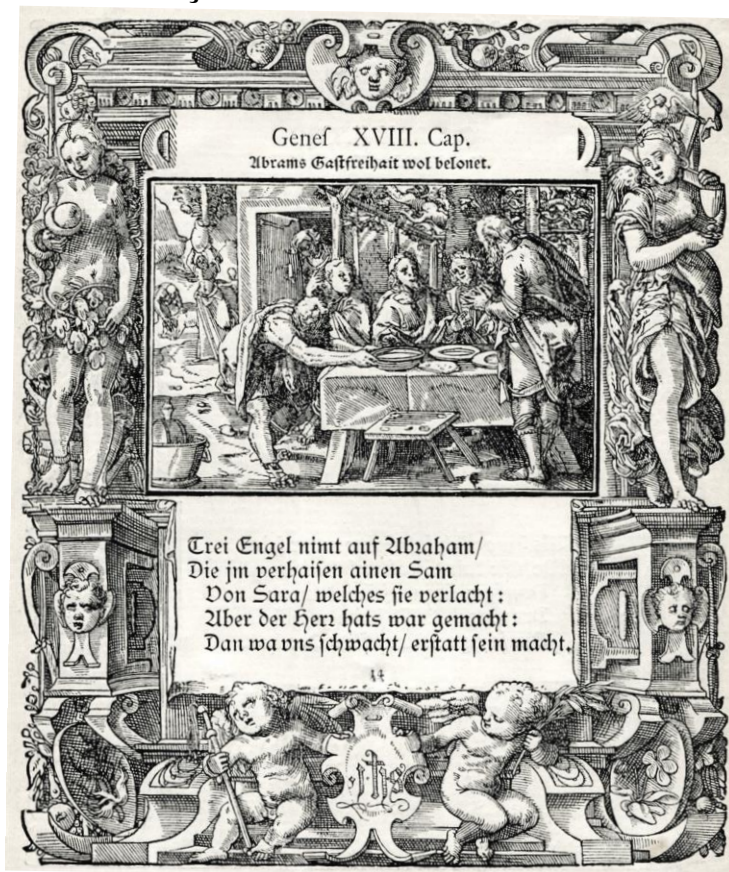 Geneſ XVIII. Cap.
Abrams Gaſtfreihait wol belonet.
Trei Engel nimt auf Abꝛaham/
Die jm verhaiſen ainen Sam
Von Sara/ welches ſie verlacht:
Aber der Herꝛ hats war gemacht:
Dan wa vns ſchwacht/ erſtatt ſein macht.